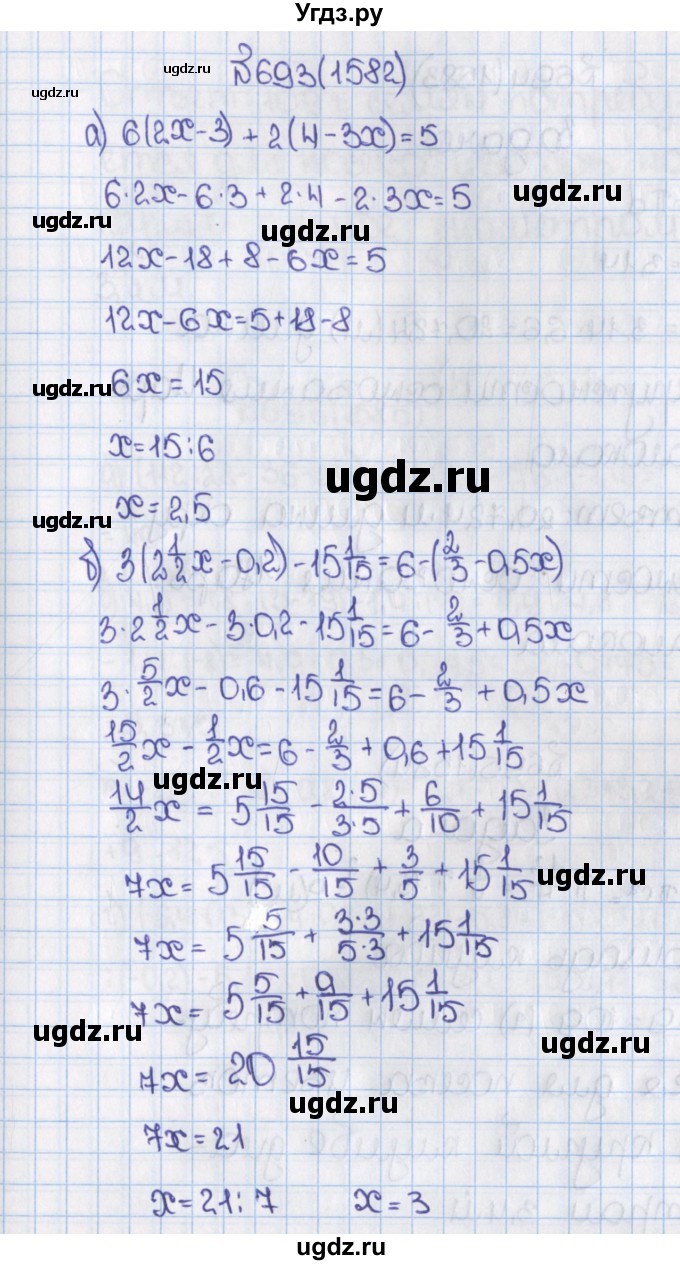 Угдз.ру
ugdz.ru
ugdz.ru
№693(1582)
а) 6(2x-3)+2(4-3x)=5
6·2x-6·3+2·4-2·3x=5
ugdz.ru
ugdz.ru
ugdz.ru
12x-18+8-6x=5
12x-6x=5+18-8
ugdz.ru
6x=15
x=15:6
ugdz.ru
x=2,5
ugdz.ru
б) 3(2 1/2 x-0,2)-15 1/15=6-(2/3-0,5x)
3·2 1/2 x-3·0,2-15 1/15=6-2/3+0,5x
3·5/2 x-0,6-15 1/15=6-2/3+0,5x
15/2 x-1/2 x=6-2/3+0,6+15 1/15
ugdz.ru
14/2 x=5 15/15-2·5/3·5+6/10+15 1/15
7x=5 15/15-10/15+3/5+15 1/15
ugdz.ru
7x=5 5/15+3·3/5·3+15 1/15
7x=5 5/15+9/15+15 1/15
ugdz.ru
ugdz.ru
7x=20 15/15
ugdz.ru
7x=21
x=21:7 x=3
ugdz.ru